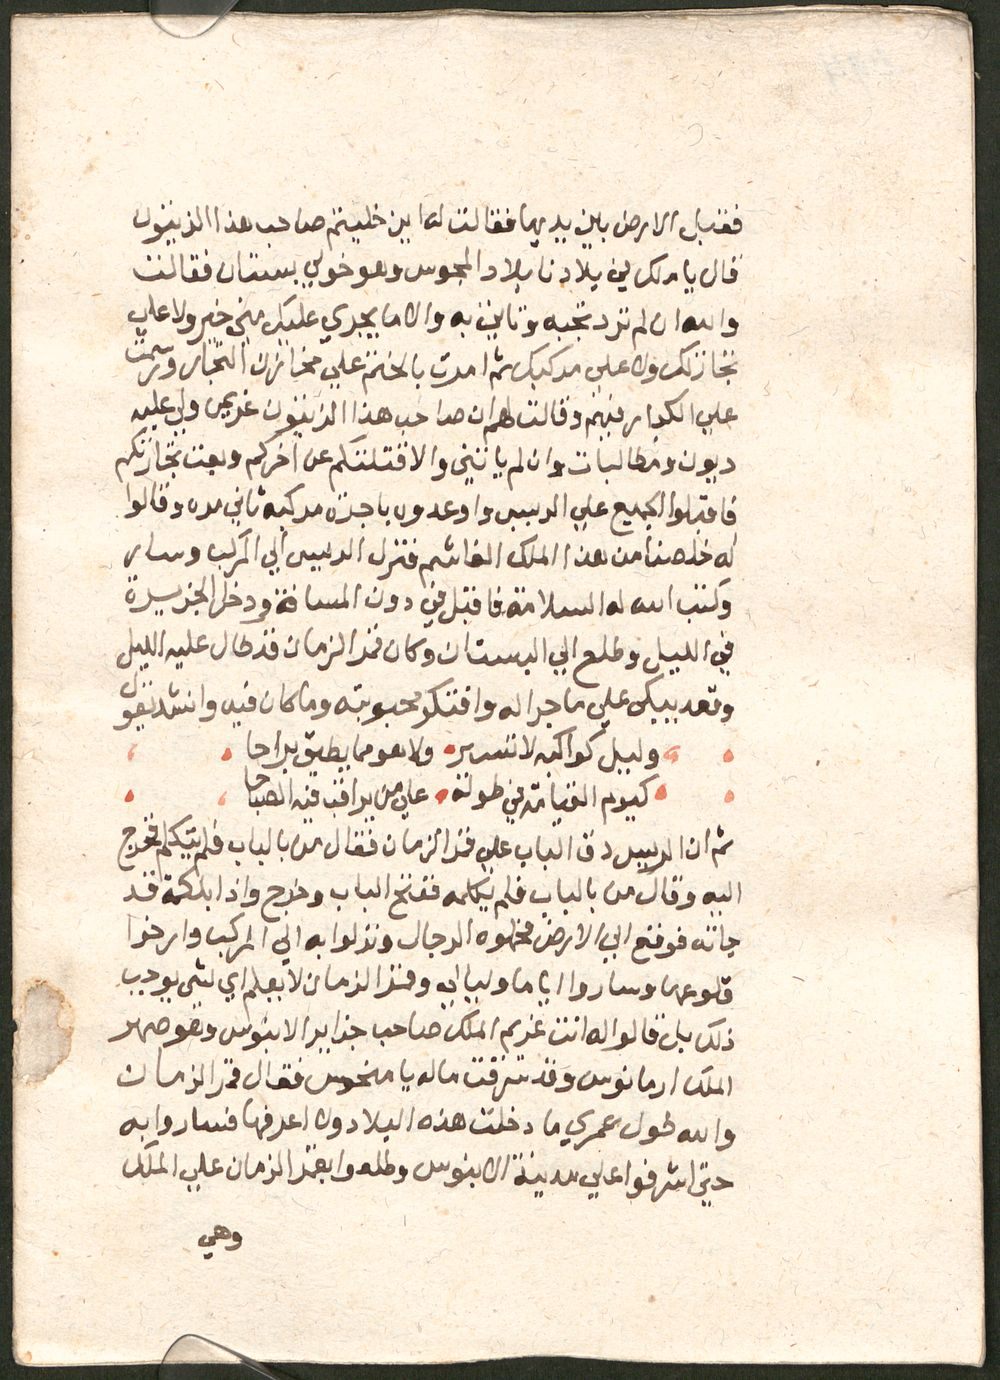 فقبل الارض بين يديها فقالت له اين خليتم صاحب هذا الزيتون
قال يا ملك في بلادنا بلاد المجوس وهو خولي بستان فقالت
والله ان لم ترد تجيبه وتاتيني به والا ما يجري عليك مني خير ولا علي
تجارتك ولا علي مركبك ثم امرت بالختم علي مخازن التجار ورسمت
علي الكبار منهم وقالت لهم ان صاحب هذا الزيتون غريمي ولي عليه
ديون ومطالبات وان لم ياتيني والا قتلتكم عن اخركم وبعت تجارتكم
فاقبلوا الجميع علي الرييس واوعدوه باجرة مركبه ثاني مره وقالوا
له خلصنا من هذا الملك الغاشم فنزل الرييس الي المركب وسار
وكتب الله له السلامة فاقبل في دون المسافة ودخل الجزيرة
في الليل وطلع الي البستان وكان قمر الزمان قد طال عليه الليل
وقعد يبكي علي ما جرا له وافتكر محبوبته وما كان فيه وانشد يقول
وليل كواكبه لا تسير ولا هو مما يطيق براحا
كيوم القيامة في طوله علي من يراقب فيه الصباحا
ثم ان الرييس دق الباب علي قمر الزمان فقال من بالباب فلم يتكلم فخرج
اليه وقال من بالباب فلم يكلمه ففتح الباب وخرج واذا بلكمة قد
جاته فوقع الي الارض فحملوه الرجال ونزلوا به الي المركب وارخوا
قلوعها وساروا اياما وليالي وقمر الزمان لا يعلم اي شي يوجب
ذلك بل قالوا له انت غريم الملك صاحب جزاير الابنوس وهو صهر
الملك ارمانوس وقد سرقت ماله يا منحوس فقال قمر الزمان
والله طول عمري ما دخلت هذه البلاد ولا اعرفها فساروا به
حتي اشرفوا علي مدينة الابنوس وطلعوا بقمر الزمان علي الملك
وهي